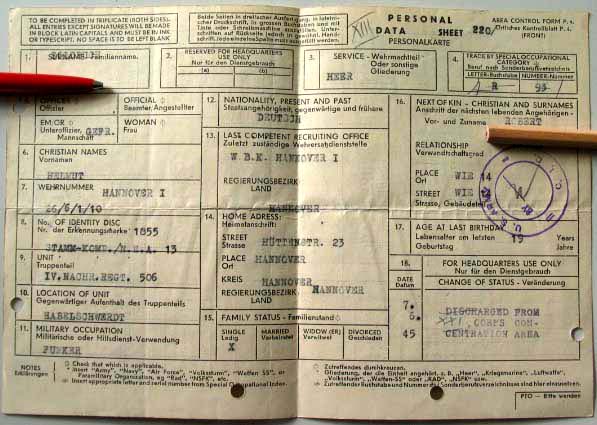 TO BE COMPLETED IN TRIPLICATE (BOTH SIDES).
ALL ENTRIES EXCEPT SIGNATURES WILL BE MADE
IN BLOCK LATIN CAPITALS AND MUST BE IN INK
OR TYPESCRIPT. NO SPACE IS TO BE LEFT BLANK
Beide Seiten in dreifacher Ausfertigung, in lateinischer
XIII
PERSONAL
DATA SHEET 220
PERSONALKARTE
AREA CONTROL FORM P. 4.
(FRONT)
1.
Familienname.
2. RESERVED FOR HEADQUARTERS
USE ONLY
Nur für den Dienstgebrauch
(a) (b)
3. SERVICE - Wehrmachtteil
Oder sonstige
Gliederung
HEER
4. TRADE OF SPECIAL OCCUPATIONAL
CATEGORY
Beruf nach Sonderberufsverzeichnis
LETTER-Buchstabe NUMBER-Nummer
R 93
OFFICER
Offizier
OFFICIAL
Beamter, Angestellter
EM/OR
Unteroffizier, GEFR.
Mannschaft
WOMAN
Frau
6. CHRISTIAN NAMES
Vornamen
HELMUT
7. WEHRNUMMER HANNOVER I
26/6/1/10
8. No. OF IDENTITY DISC
Nr. der Erkennungsmarke 1855
STAMM-KOMP./N.E.A. 13
9. UNIT
Truppenteil
IV. NACHR. REGT. 506
10. LOCATION OF UNIT
Gegenwärtiger Aufenthalt des Truppenteils
HABELSCHWERDT
11. MILITARY OCCUPATION
Militärische oder Hilfsdienst-Verwendung
FUNKER
12. NATIONALITY, PRESENT AND PAST
Staatsangehörigkeit, gegenwärtige und frühere
DEUTSCH
13. LAST COMPETENT RECRUITING OFFICE
Zuletzt zuständige Wehrersatzdienststelle
W.B.K. HANNOVER I
REGIERUNGSBEZIRK
LAND
HANNOVER
14. HOME ADRESS:
Heimatanschrift:
STREET
Strasse HÜTTENSTR. 23
PLACE
Ort HANNOVER
KREIS HANNOVER
REGIERUNGSBEZIRK HANNOVER
LAND
15. FAMILY STATUS - Familienstand
SINGLE
Ledig
X
MARRIED
Verheiratet
WIDOW (ER)
Verwitwet
DIVORCED
Geschieden
16. NEXT OF KIN - CHRISTIAN AND SURNAMES
Anschrift der nächsten lebenden Angehörigen -
Vor- und Zuname ROBERT
RELATIONSHIP
Verwandtschaftsgrad
PLACE
Ort WIE 14
STREET WIE
Strasse, Gebäudeteil
17. AGE AT LAST BIRTHDAY
Lebensalter am letzten 19 Years
Geburtstag Jahre
18. FOR HEADQUARTERS USE ONLY
Nur für den Dienstgebrauch
DATE
Datum
CHANGE OF STATUS - Veränderung
7.
6.
45
DISCHARGED FROM
XXI. CORPS CON-
CENTRATION AREA
NOTES
Erklärungen
Check that which is applicable.
Insert "Army", "Navy", "Air Force", "Volkssturm", "Waffen SS" or
Paramilitary Organization, eg "Rad", "NSFK", etc.
Insert appropriate letter and serial number from Special Occupational Index.
Zutreffendes durchkreuzen.
Gliederung, der die Einheit angehört, z. B. "Heer", "Kriegsmarine", "Luftwaffe",
"Volkssturm", "Waffen-SS" oder "RAD", "NSFK" usw.
Zutreffende Buchstabe und Nummer des Sonderberufsverzeichnisses sind hier einzusetzen.
PTO - Bitte wenden